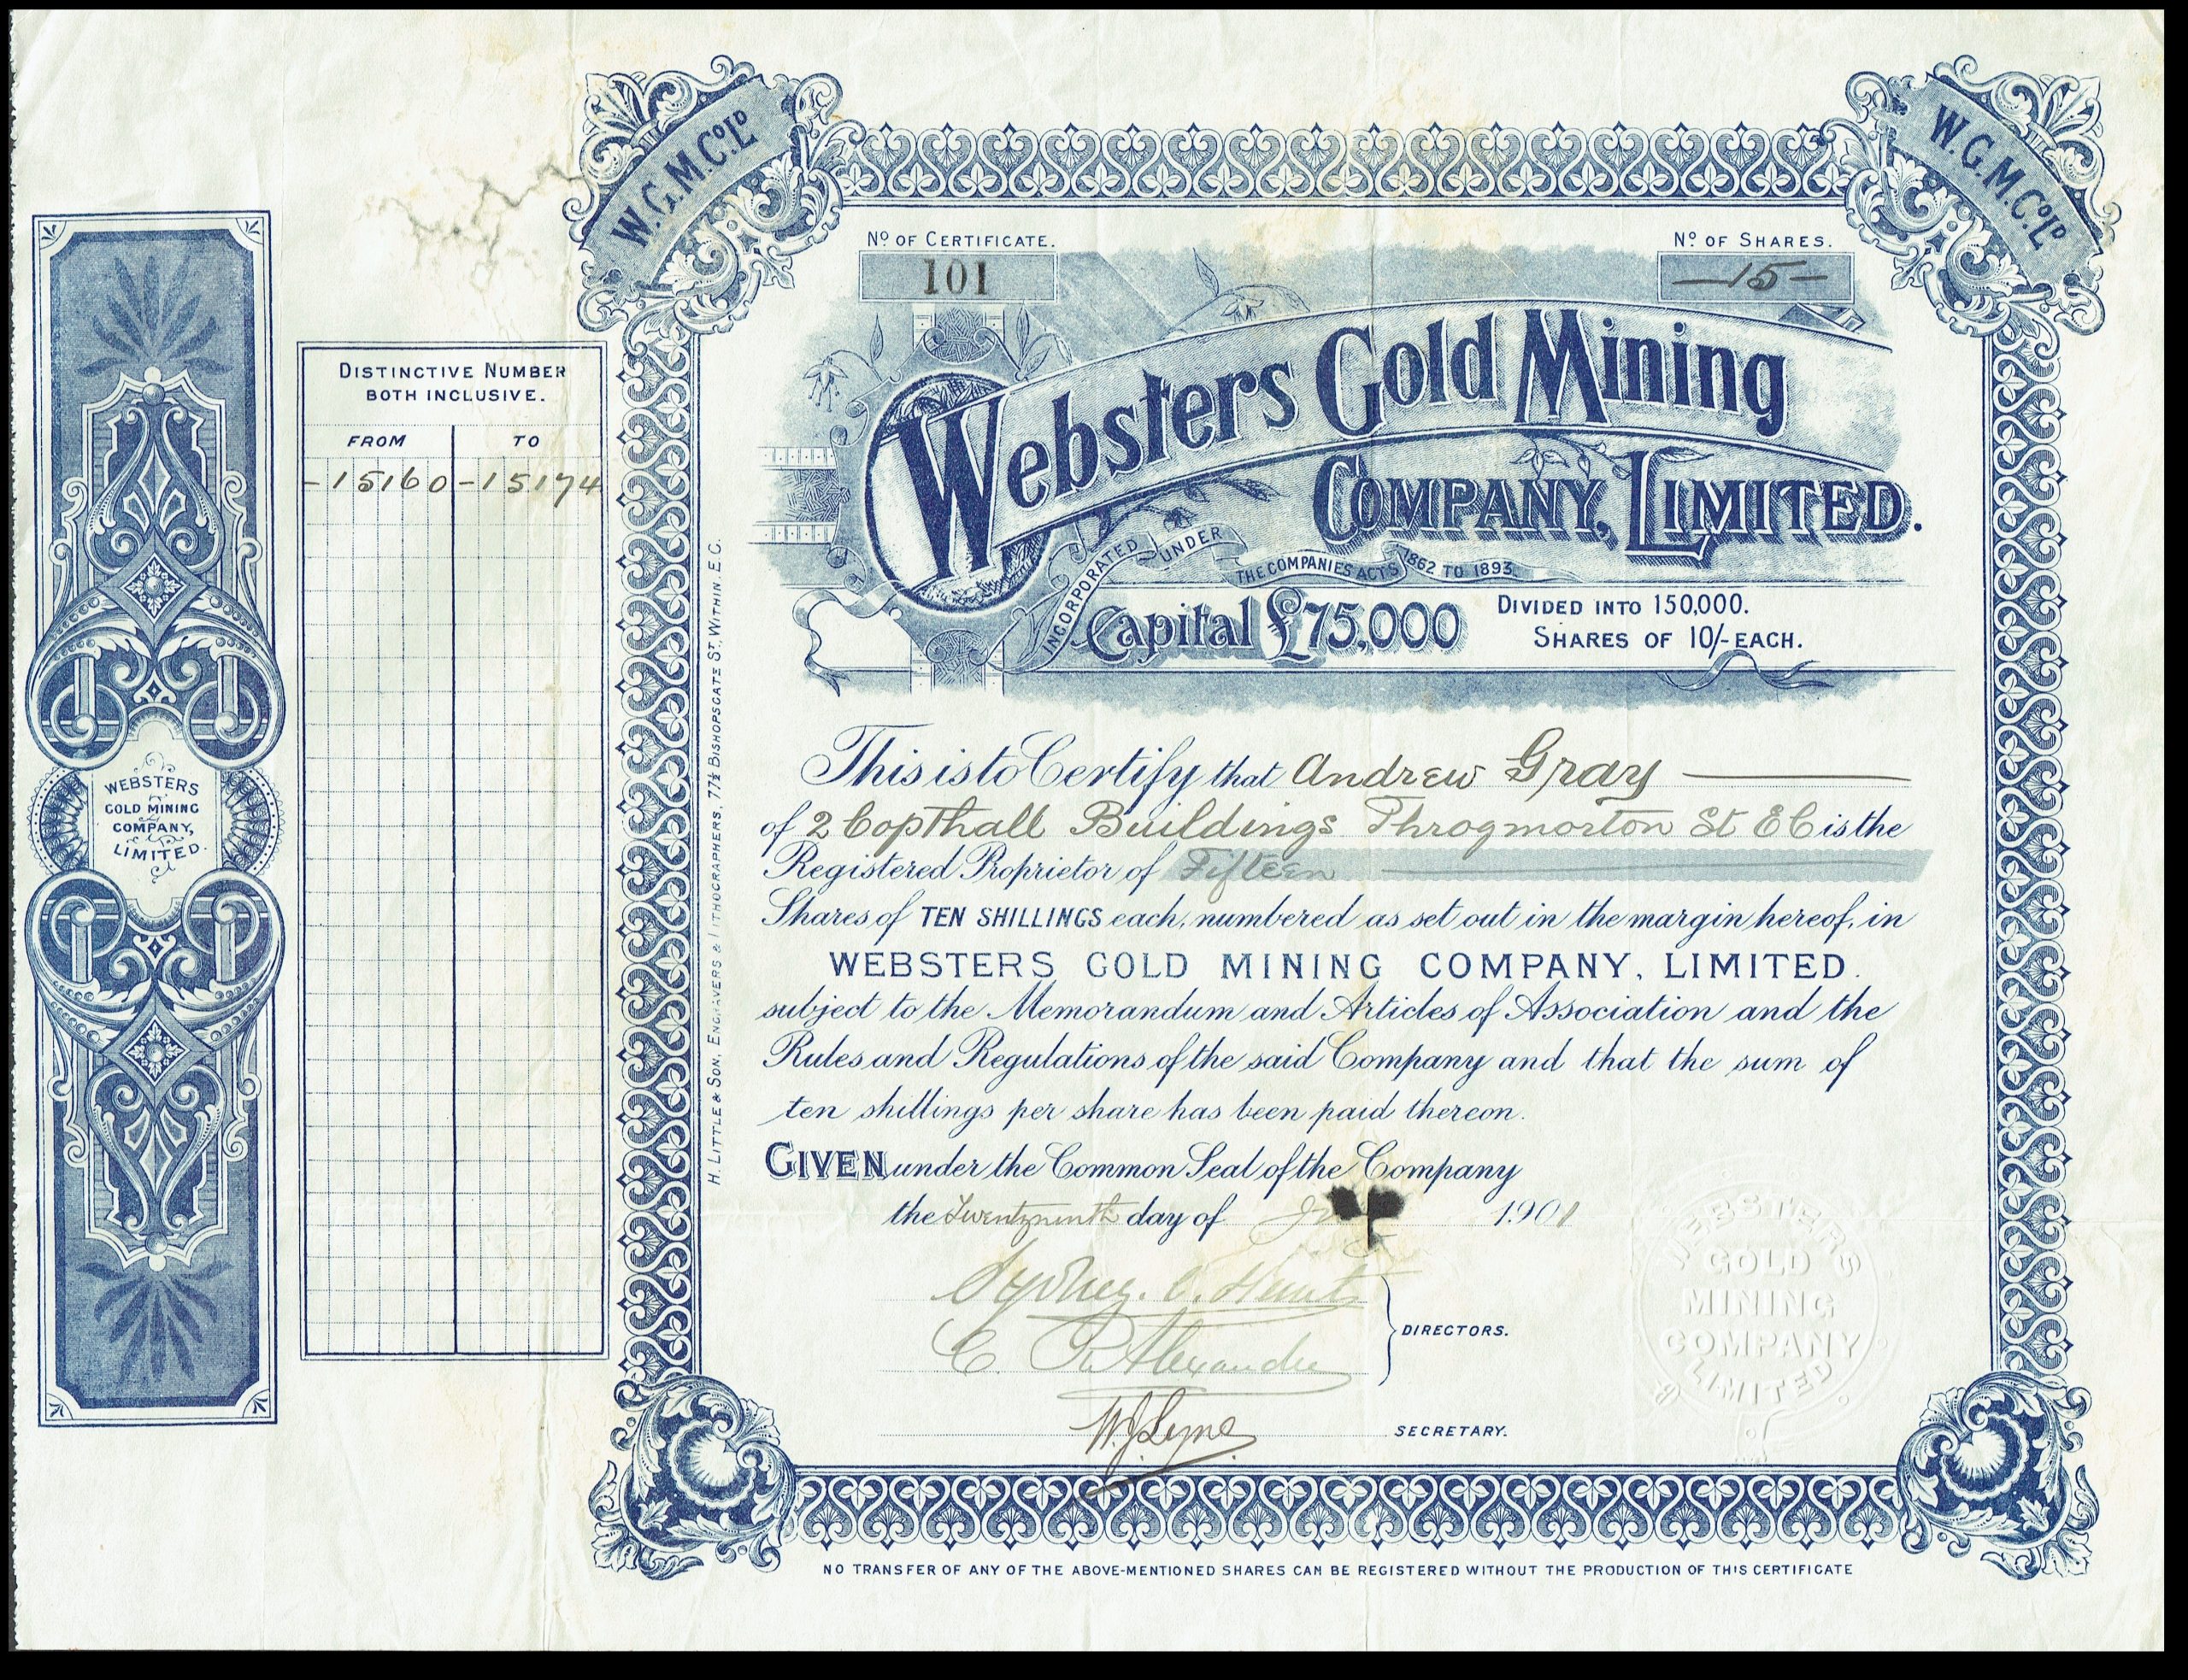 W.G.M.Co.Ld
W.G.M.Co.Ld
No OF CERTIFICATE.
101
No OF SHARES.
—15—
DISTINCTIVE NUMBER
BOTH INCLUSIVE.
FROM TO
-15160 -15174
WEBSTERS
GOLD MINING
COMPANY,
LIMITED.
H. LITTLE & SON, ENGRAVERS & LITHOGRAPHERS, 77½ BISHOPSGATE ST. WITHIN, E.C.
Websters Gold Mining
COMPANY, LIMITED.
INCORPORATED UNDER
THE COMPANIES ACTS 1862 TO 1893.
Capital £75,000
DIVIDED INTO 150,000.
SHARES OF 10/- EACH.
This is to Certify that Andrew Gray
of 2 Copthall Buildings Throgmorton St E C is the
Registered Proprietor of Fifteen
Shares of TEN SHILLINGS each, numbered as set out in the margin hereof, in
WEBSTERS GOLD MINING COMPANY, LIMITED.
subject to the Memorandum and Articles of Association and the
Rules and Regulations of the said Company and that the sum of
ten shillings per share has been paid thereon.
GIVEN under the Common Seal of the Company
the Twentyninth day of 1901
Sydney. C.
C. R. Alexander
DIRECTORS.
W. J. Lyne
SECRETARY.
WEBSTERS
GOLD
MINING
COMPANY
LIMITED
NO TRANSFER OF ANY OF THE ABOVE-MENTIONED SHARES CAN BE REGISTERED WITHOUT THE PRODUCTION OF THIS CERTIFICATE